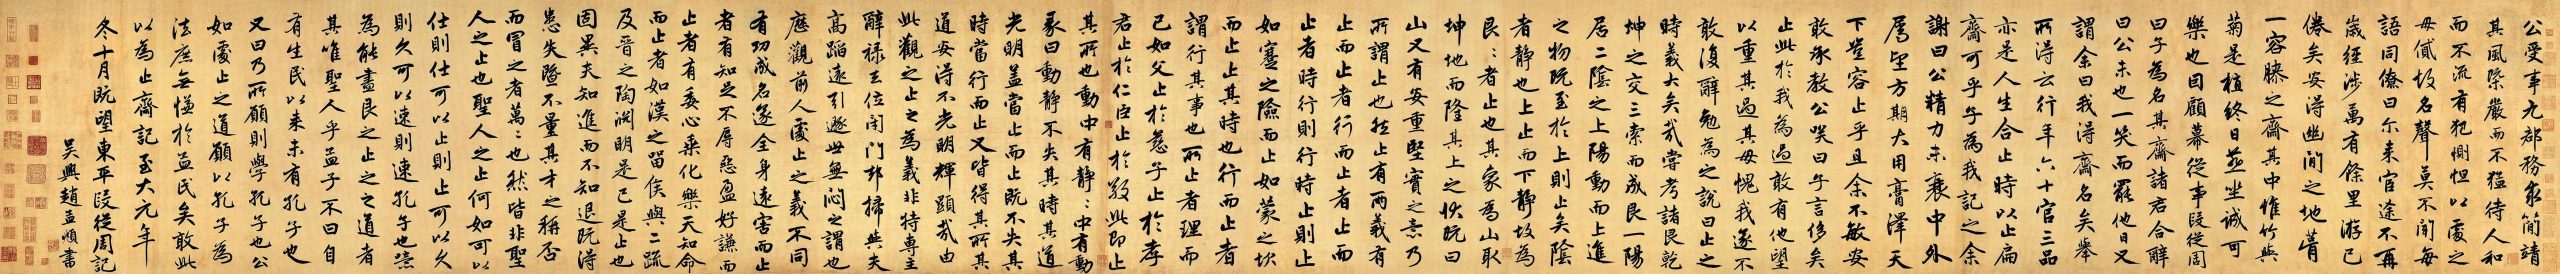 公受事允郡務求簡靖
其風際嚴而不猛待人和
而不流有犯惻怛以處之
毋倦故名聲莫不聞每
語同僚曰尔來官途不再
歲經涉萬有餘里游已
倦矣安得幽閒之地葺
一容膝之齋其中惟竹與
菊是植終日燕坐誠可
樂也因顧幕從事段從周
曰子為名其齋諸君合辭
曰公未也一笑而罷他日又
謂余曰我得齋名矣舉
所得云行年六十官三品
亦是人生合止時以止扁
齋可乎子為我記之余
謝曰公精力未衰中外
屬望方期大用膏澤天
下豈容止乎且余不敏安
敢承教公咲曰子言侈矣
止此於我為過敢有他望
以重其過其毋愧我遂不
敢復辭勉為之說曰止之
時義大矣哉嘗考諸艮乾
坤之交三索而成艮一陽
居二陰之上陽動而上進
之物既至於上則止矣陰
者靜也上止而下靜故為
艮艮者止也其象為山取
坤地而隆其上之狀既曰
山又有安重堅實之意乃
所謂止也然止有兩義有
止而止者行而止者止而
止者時行則行時止則止
如蹇之險而止如蒙之坎
而止止其時也行而止者
謂行其事也所止者理而
已如父止於慈子止於孝
君止於仁臣止於敬此即止
其所也動中有靜靜中有動
彖曰動靜不失其時其道
光明蓋當止而止既不失其
時當行而止又皆得其所其
道安得不光明輝顯哉由
此觀之止之為義非特專主
辭祿去位閉門却掃與夫
高蹈遂引遯世無悶之謂也
歷觀前人處止之義不同
有功成名遂全身遠害而止
者有知足不辱惡盈好謙而
止者有委心乘化樂天知命
而止者如漢之留侯與二疏
及晉之陶淵明是已是止也
固異夫知進而不知退既得
患失暨不量其才之稱否
而冒之者萬萬也然皆非聖
人之止也聖人之止何如可以
仕則仕可以止則止可以久
則久可以速則速孔子也嘗
為能盡艮之止之之道者
其唯聖人乎孟子不曰自
有生民以來未有孔子也
又曰乃所願則學孔子也公
如處止之道願以孔子為
法庶無慊於益民矣敢此
以為止齋記至大元年
冬十月既望東平段從周記
吳興趙孟頫書